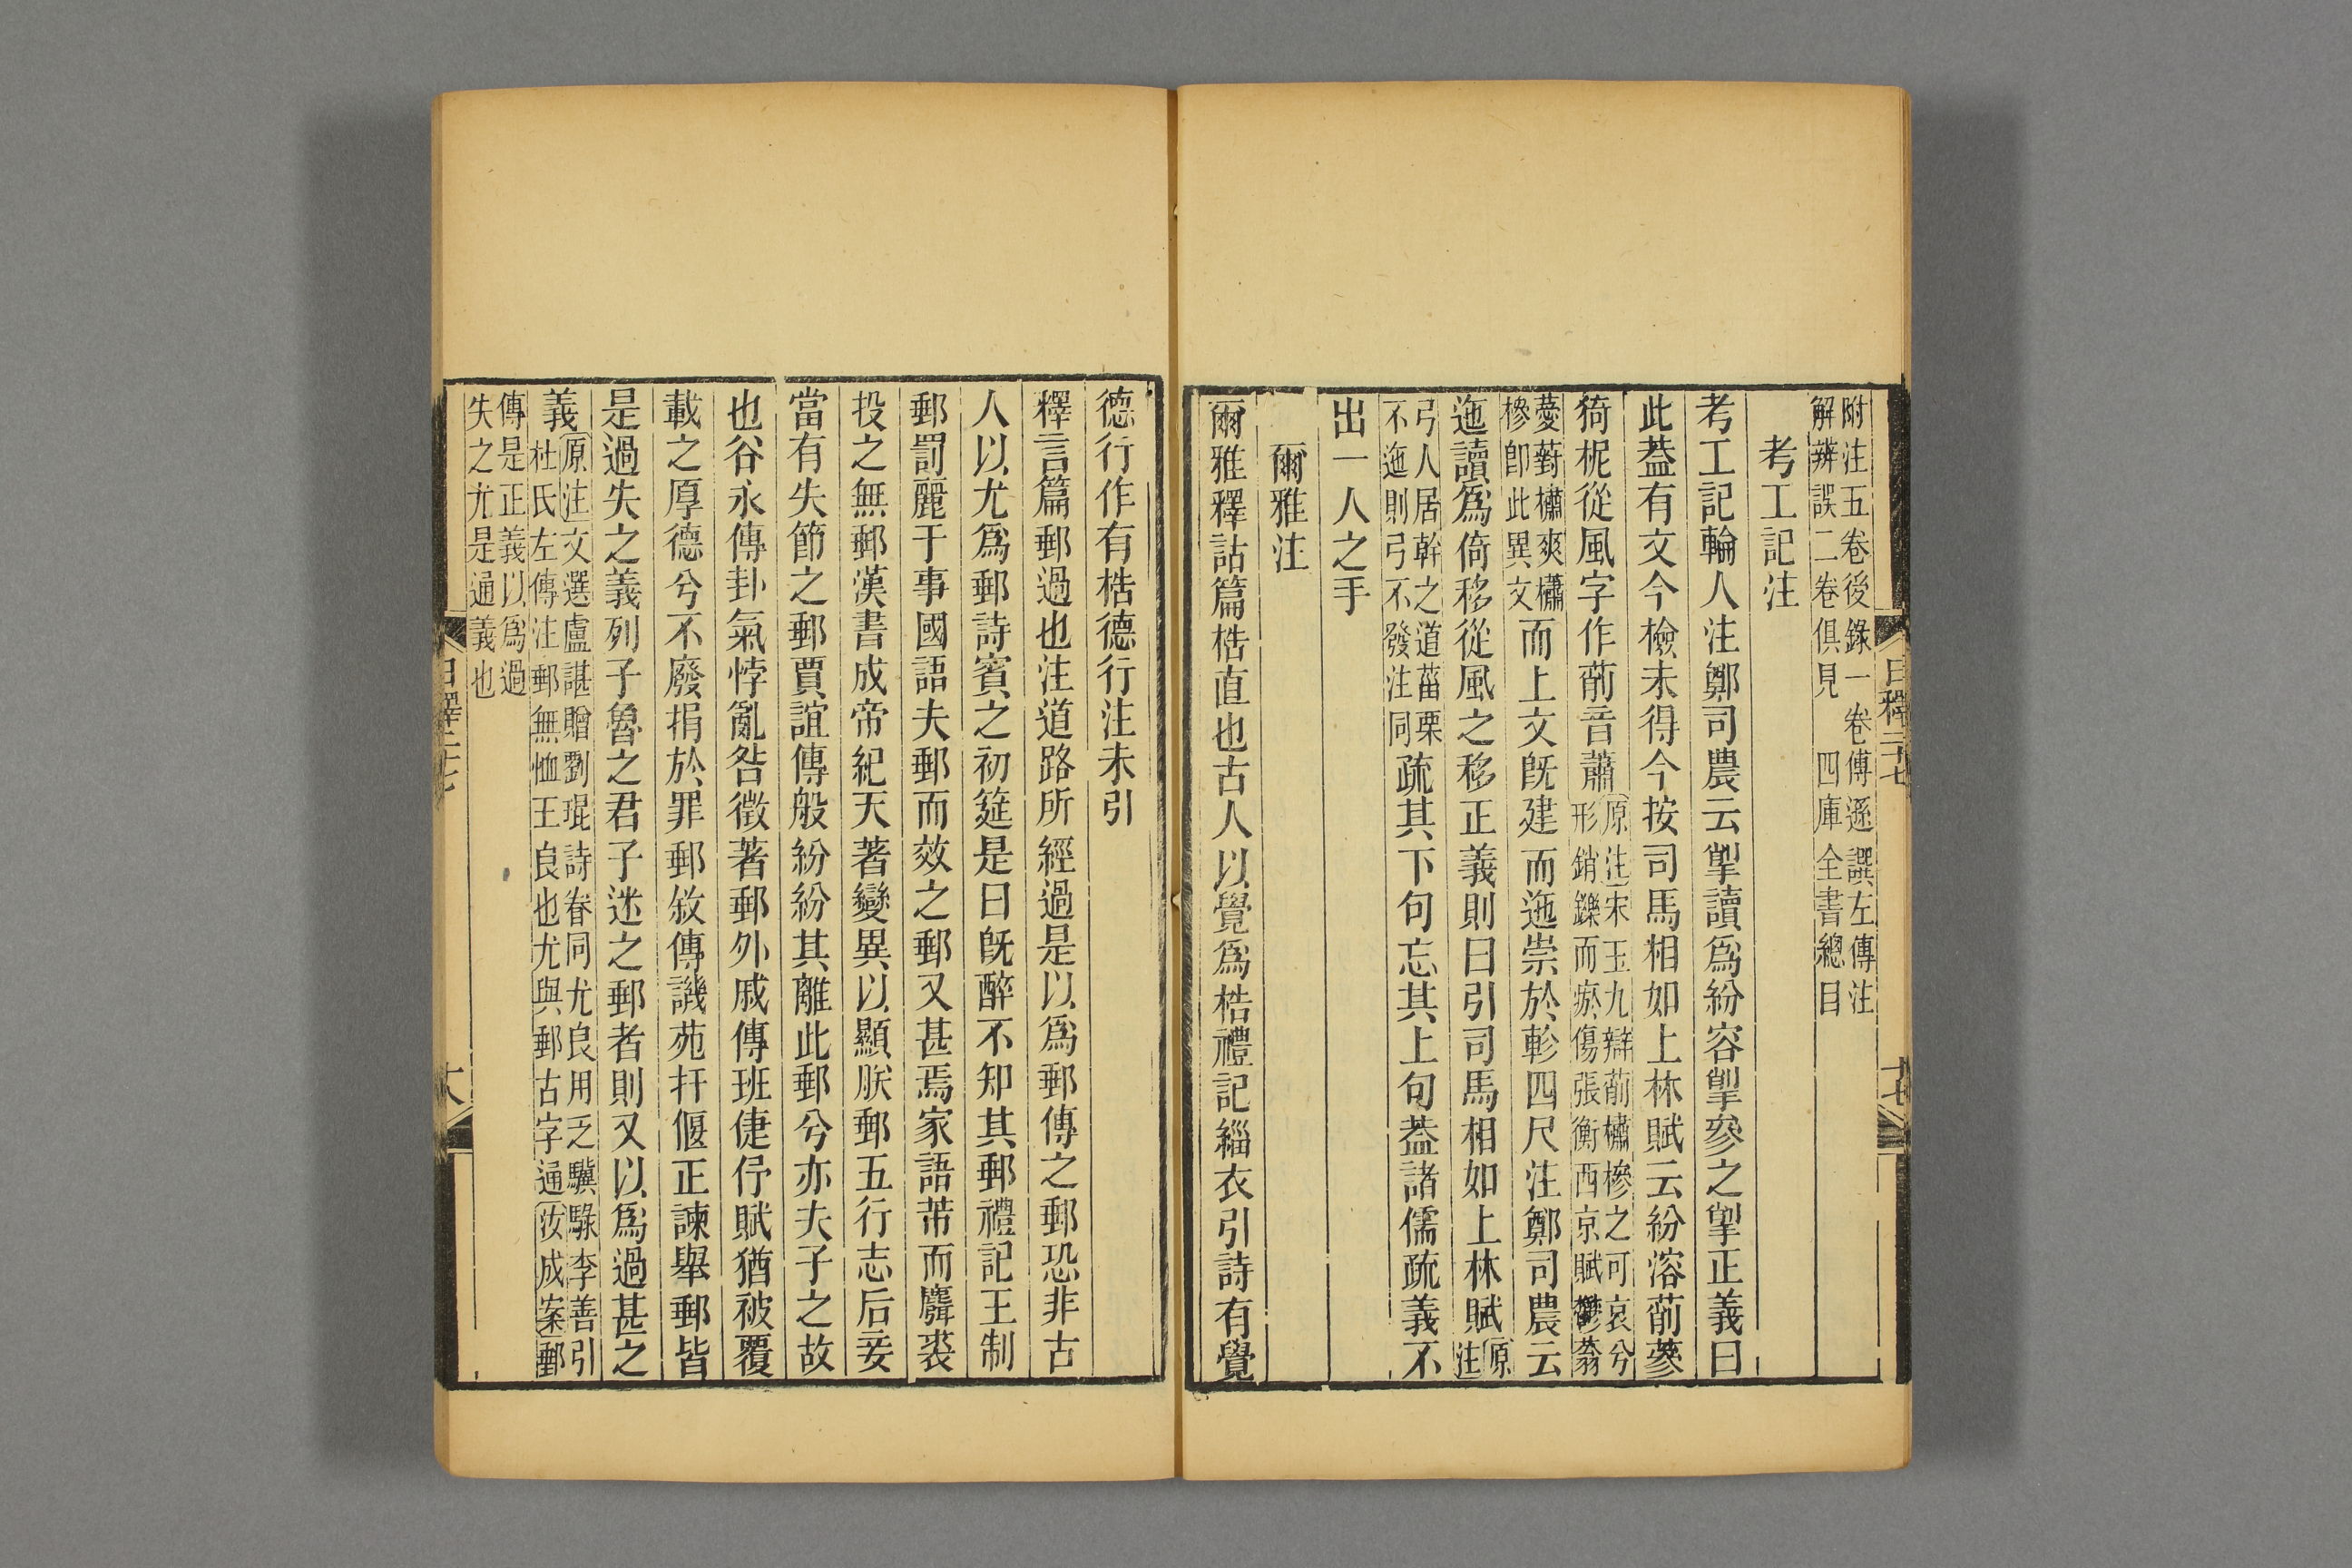 日釋二十七
十七
附注五卷後錄一卷傅遜譔左傳注
解辨誤二卷俱見 四庫全書總目
考工記注
考工記輪人注鄭司農云掣讀爲紛容掣參之掣正義曰
此葢有文今檢未得今按司馬相如上林賦云紛溶萷蔘
猗柅從風字作萷音蕭原注宋玉九辯萷櫹槮之可哀兮
形銷鑠而瘀傷張衡西京賦鬱蓊
薆薱櫹爽櫹
槮卽此異文而上文旣建而迤崇於軫四尺注鄭司農云
迤讀爲倚移從風之移正義則曰引司馬相如上林賦原
注
弓人居幹之道菑栗
不迤則弓不發注同疏其下句忘其上句葢諸儒疏義不
出一人之手
爾雅注
爾雅釋詁篇梏直也古人以覺爲梏禮記緇衣引詩有覺
德行作有梏德行注未引
釋言篇郵過也注道路所經過是以爲郵傳之郵恐非古
人以尤爲郵詩賓之初筵是曰旣醉不知其郵禮記王制
郵罰麗于事國語夫郵而效之郵又甚焉家語芾而麛裘
投之無郵漢書成帝紀天著變異以顯朕郵五行志后妾
當有失節之郵賈誼傳般紛紛其離此郵兮亦夫子之故
也谷永傳卦氣悖亂咎徵著郵外戚傳班倢伃賦猶被覆
載之厚德兮不廢捐於罪郵敘傳譏苑扞偃正諫舉郵皆
是過失之義列子魯之君子迷之郵者則又以爲過甚之
義原注文選盧諶贈劉琨詩眷同尤良用乏驥騄李善引
杜氏左傳注郵無恤王良也尤與郵古字通汝成案郵
傳是正義以爲過
失之尤是通義也
日釋二十七
十八